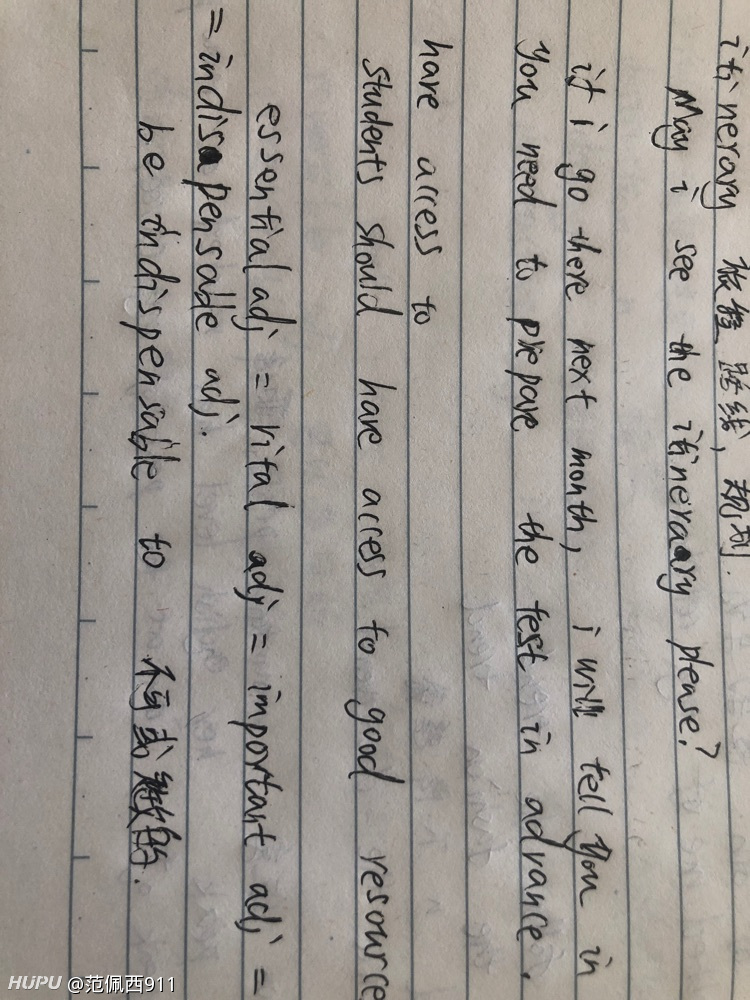 itinerary 旅程路线,规划.
May i see the itineraary please?
if i go there next month, i will tell you in
you need to prepare the test in advance.
have access to
students should have access to good resource
essential adj = vital adj = important adj =
= indisapensable adj.
be indispensable to 不可或缺的.
HUPU @范佩西911